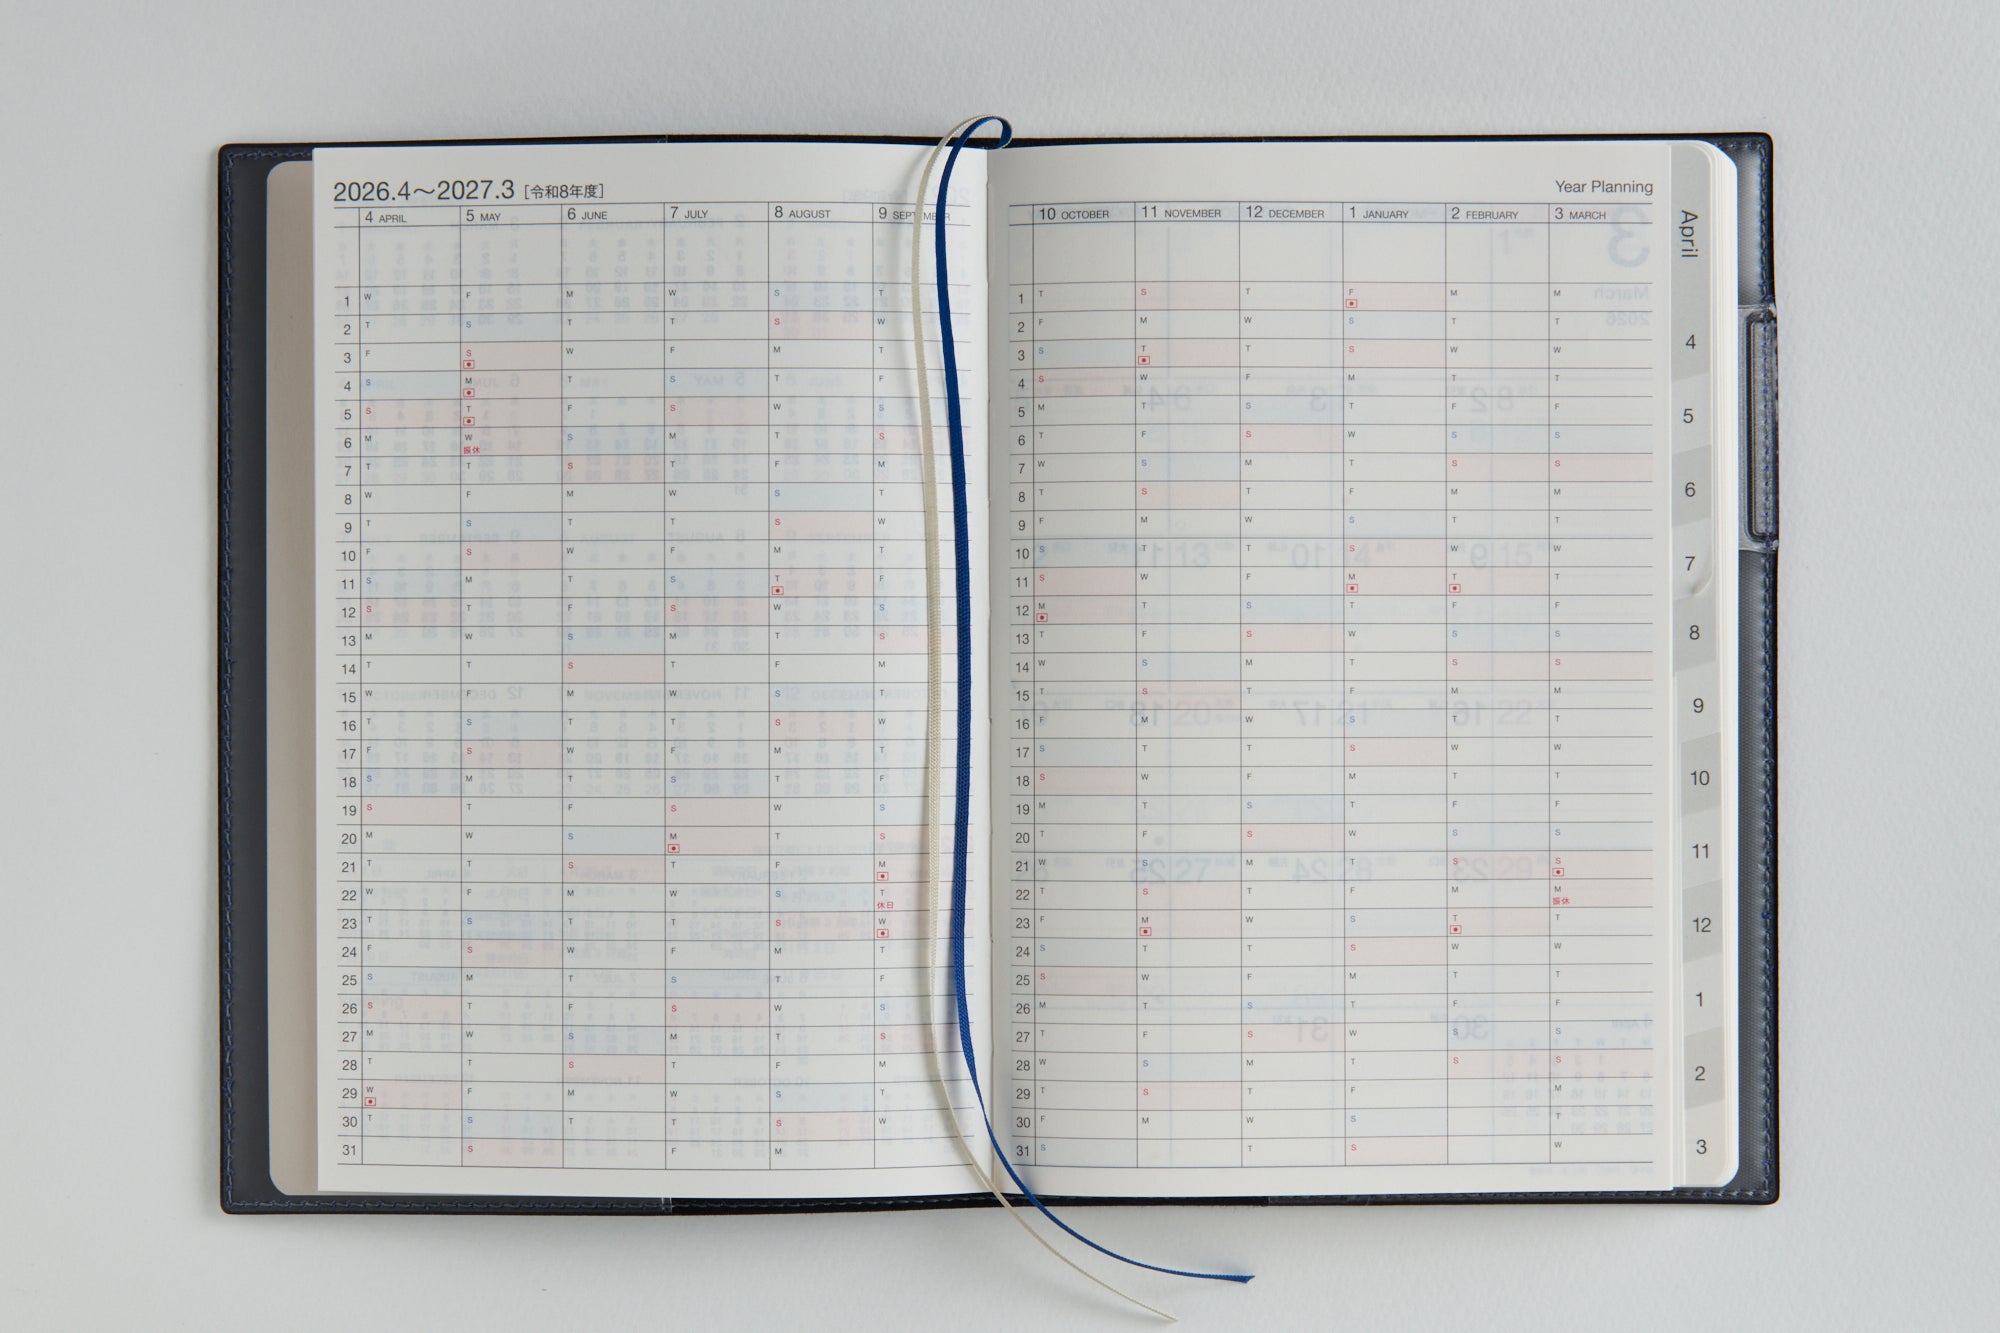 2026.4～2027.3 [令和8年度]
4 APRIL 5 MAY 6 JUNE 7 JULY 8 AUGUST 9
1 W F M W S T
2 T S T T S W
3 F S W F M T
4 S M T S T F
5 S T F S W S
6 M W S M T S
振休
7 T T S T F M
8 W F M W S T
9 T S T T S W
10 F S W F M T
11 S M T S T F
12 S T F S W S
13 M W S M T S
14 T T S T F M
15 W F M W S T
16 T S T T S W
17 F S W F M T
18 S M T S T F
19 S T F S W S
20 M W S M T S
21 T T S T F M
22 W F M W S T
休日
23 T S T T S W
24 F S W F M T
25 S M T S T F
26 S T F S W S
27 M W S M T S
28 T T S T F M
29 W F M W S T
30 T S T T S W
31 S F M
Year Planning
10 OCTOBER 11 NOVEMBER 12 DECEMBER 1 JANUARY 2 FEBRUARY 3 MARCH
1 T S T F M M
2 F M W S T T
3 S T T S W W
4 S W F M T T
5 M T S T F F
6 T F S W S S
7 W S M T S S
8 T S T F M M
9 F M W S T T
10 S T T S W W
11 S W F M T T
12 M T S T F F
13 T F S W S S
14 W S M T S S
15 T S T F M M
16 F M W S T T
17 S T T S W W
18 S W F M T T
19 M T S T F F
20 T F S W S S
21 W S M T S S
22 T S T F M M
振休
23 F M W S T T
24 S T T S W W
25 S W F M T T
26 M T S T F F
27 T F S W S S
28 W S M T S S
29 T S T F M
30 F M W S T
31 S T S W
April
4
5
6
7
8
9
10
11
12
1
2
3